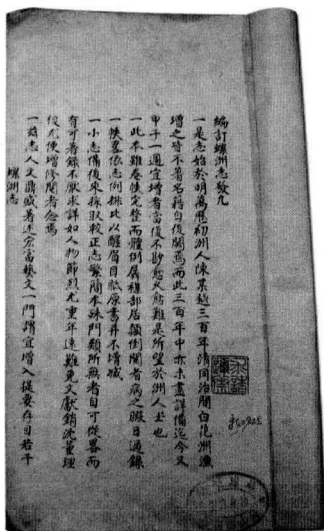 編訂螺洲志發凡
一是志始於明萬歷初洲人陳某越三百年清同治間白苑洲漁
增之皆不著名籍自後闕焉而此三百年中亦未盡詳備迄今又
甲子一週宜增者當復不尠愈久愈難是所望於洲人士也
一此本雖卷帙完整而體例屬雜部居顛倒閱者病之暇日過錄
一帙畧依志例排比以醒眉目耳原書并不增減
一小志備後來採取較正志繁簡本殊門類所無者自可從畧而
有可著錄不厭求詳如人物節烈尤重年遠難免文獻銷沈董理
後尤便增修閱者念焉
一茲志人文鼎盛著述宏富藝文一門謂宜增入提要存目若干
螺洲志